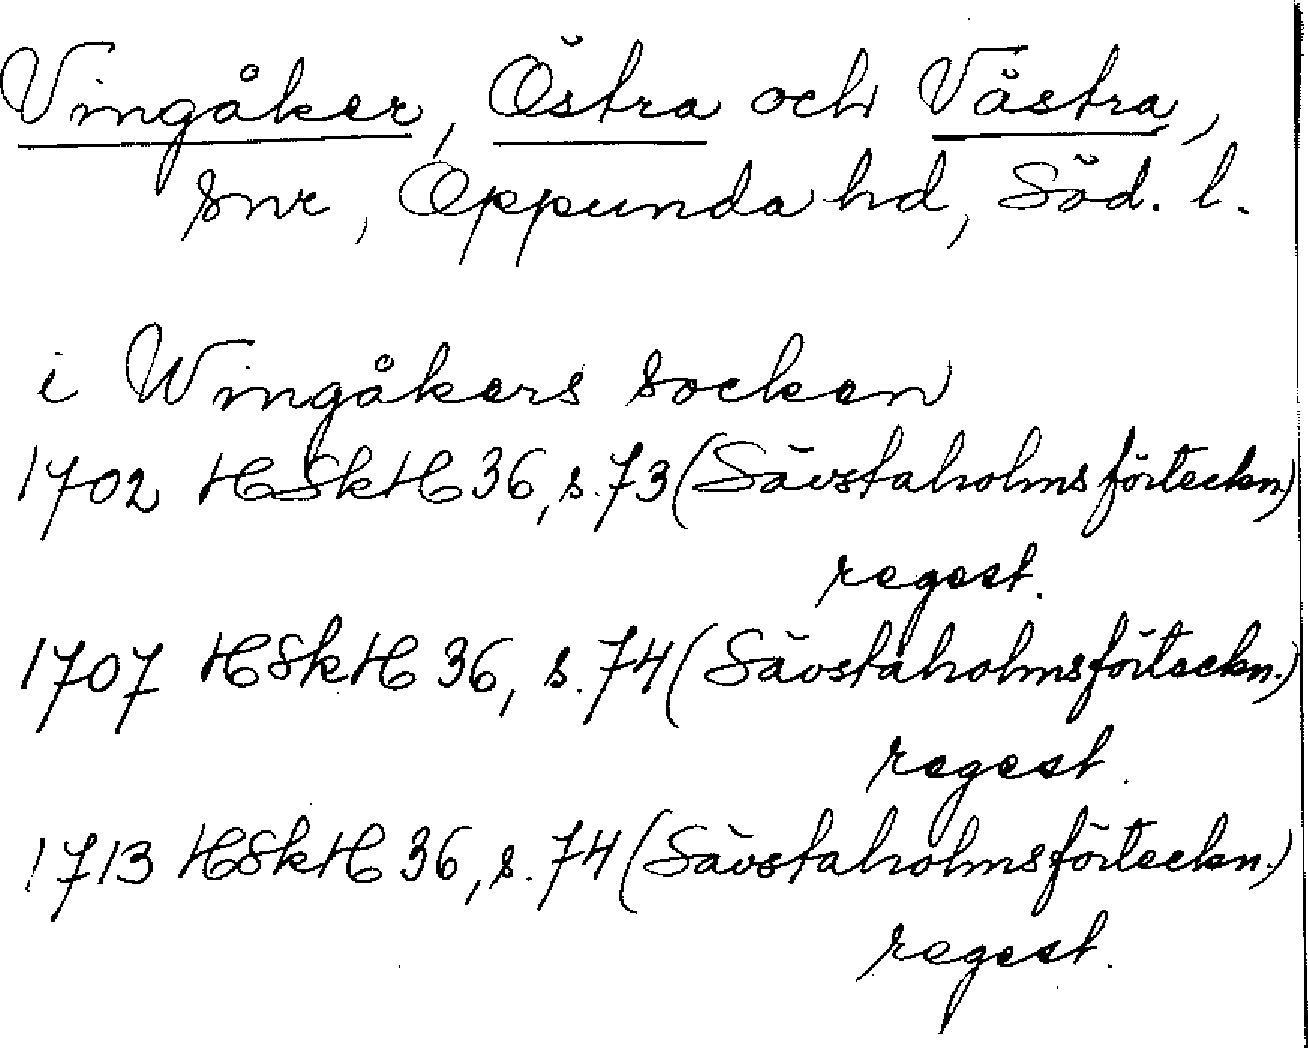 Vingåker, Östra och Västra,
snr, Oppunda hd, Söd. l.
i Wingåkers socken
1702 HSkH 36, s. 73 (Sävstaholmsförteckn.)
regest.
1707 HSkH 36, s. 74 (Sävstaholmsförteckn.)
regest.
1713 HSkH 36, s. 74 (Sävstaholmsförteckn.)
regest.